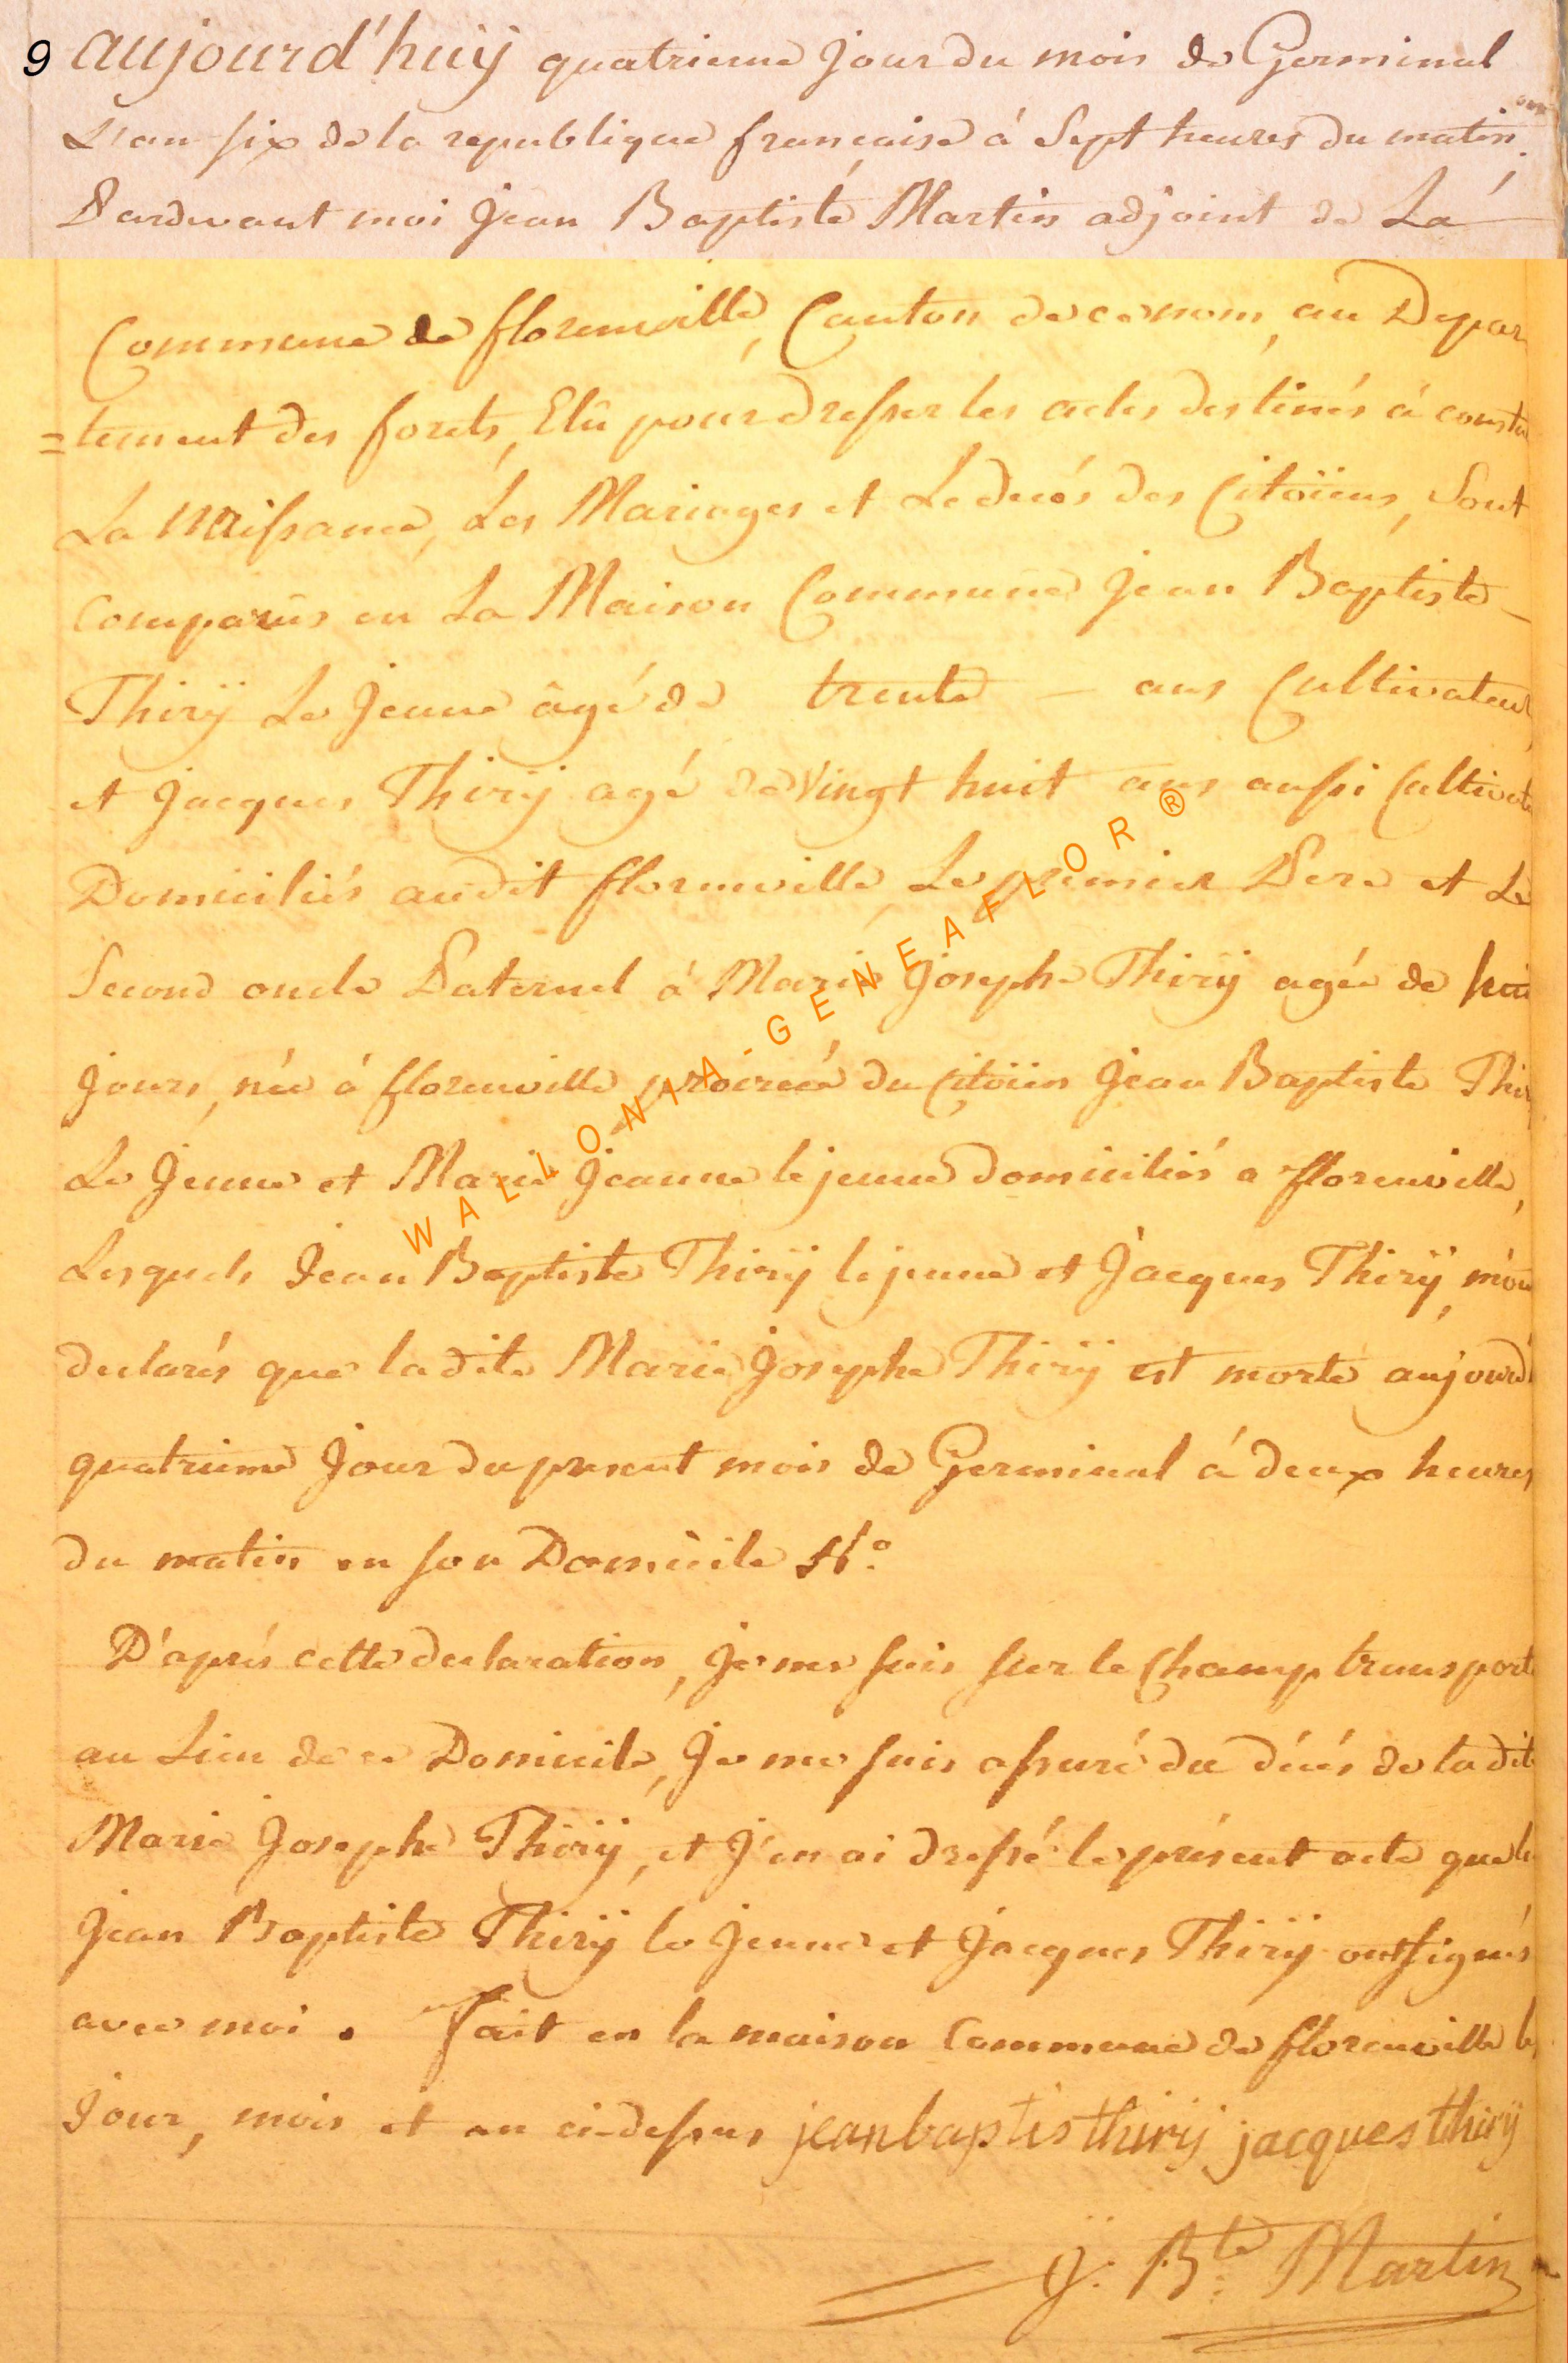 9 aujourd'huÿ quatrieme jour du mois de Germinal
L'an six de la republique française á Sept heures du matin.
Pardevant moi Jean Baptiste Martin adjoint de La
Commune de florenville, Canton de ce nom, au Depar
=tement des forets, Elû pour dresser les actes destinés á consta
La Naissance, Les Mariages et Le decés des Citoïens, Sont
Comparûs en La Maison Commune Jean Baptiste
Thirÿ Le Jeune âgé de trente ans Cultivateur
et Jacques Thirÿ agé de Vingt huit ans aussi Cultivate
Domiciliés audit florenville, Le premier Pere et Le
Second oncle Paternel á Marie Josephe Thirÿ agée de hui
Jours, née á florenville, procreée du Citoïen Jean Baptiste Thir
Le Jeune et Marie Jeanne le jeune domiciliés a florenville,
Lesquels Jean Baptiste Thirÿ le jeune et Jacques Thirÿ, m'on
declarés que la dite Marie Josephe Thirÿ est morte aujourd'
quatrieme Jour du present mois de Germinal á deux heures
du matin en son Domicile N.º
D'aprés cette declaration, Je me suis sur le Champ transporté
au Lieu de ce Domicile, Je me suis assuré du décés de la dite
Marie Josephe Thirÿ, et J'en ai dressé le présent acte que le
Jean Baptiste Thirÿ le Jeune et Jacques Thirÿ ont signés
avec moi. Fait en la maison Commune de florenville le
Jour, mois et an ci-dessus jeanbaptis thirij jacques thirÿ
J. B.te Martin
WALLONIA-GENEAFLOR®